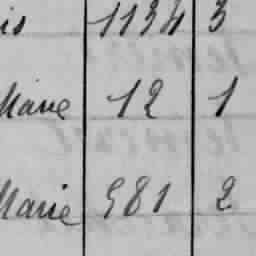 is 1134 3
Marie 12 1
Marie 981 2